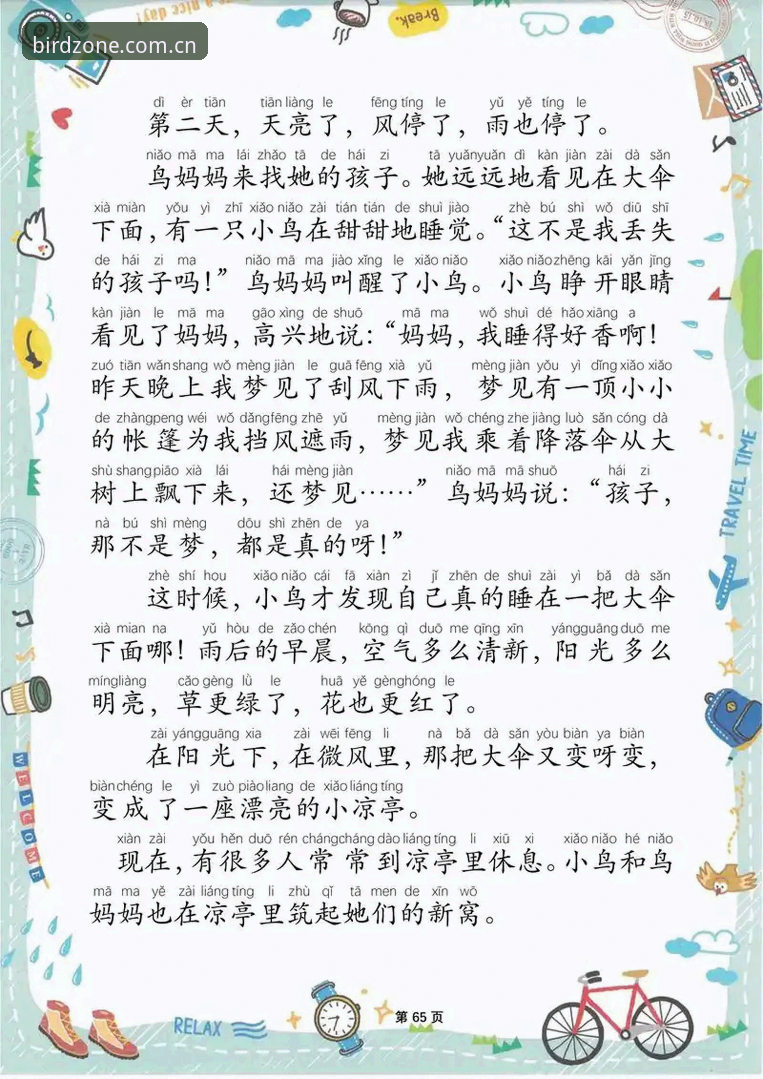 birdzone.com.cn
Break.
dì èr tiān tiān liàng le fēng tíng le yǔ yě tíng le
第二天，天亮了，风停了，雨也停了。
niǎo mā ma lái zhǎo tā de hái zi tā yuǎnyuǎn dì kàn jiàn zài dà sǎn
鸟妈妈来找她的孩子。她远远地看见在大伞
xià miàn yǒu yì zhī xiǎo niǎo zài tián tián de shuì jiào zhè bú shì wǒ diū shī
下面，有一只小鸟在甜甜地睡觉。“这不是我丢失
de hái zi ma niǎo mā ma jiào xǐng le xiǎo niǎo xiǎo niǎo zhēng kāi yǎn jīng
的孩子吗！”鸟妈妈叫醒了小鸟。小鸟睁开眼睛
kàn jiàn le mā ma gāo xìng de shuō mā ma wǒ shuì dé hǎo xiāng a
看见了妈妈，高兴地说：“妈妈，我睡得好香啊！
zuó tiān wǎn shang wǒ mèng jiàn le guā fēng xià yǔ mèng jiàn yǒu yì dǐng xiǎo xiǎo
昨天晚上我梦见了刮风下雨，梦见有一顶小小
de zhàng peng wéi wǒ dǎng fēng zhē yǔ mèng jiàn wǒ chéng zhe jiàng luò sǎn cóng dà
的帐篷为我挡风遮雨，梦见我乘着降落伞从大
shù shang piāo xià lái hái mèng jiàn niǎo mā mā shuō hái zi
树上飘下来，还梦见……”鸟妈妈说：“孩子，
nà bú shì mèng dōu shì zhēn de ya
那不是梦，都是真的呀！”
zhè shí hou xiǎo niǎo cái fā xiàn zì jǐ zhēn de shuì zài yì bǎ dà sǎn
这时候，小鸟才发现自己真的睡在一把大伞
xià mian na yǔ hòu de zǎo chén kōng qì duō me qīng xīn yáng guāng duō me
下面哪！雨后的早晨，空气多么清新，阳光多么
míng liàng cǎo gèng lǜ le huā yě gèng hóng le
明亮，草更绿了，花也更红了。
zài yáng guāng xia zài wēi fēng li nà bǎ dà sǎn yòu biàn ya biàn
在阳光下，在微风里，那把大伞又变呀变，
biàn chéng le yì zuò piào liang de xiǎo liáng tíng
变成了一座漂亮的小凉亭。
xiàn zài yǒu hěn duō rén cháng cháng dào liáng tíng li xiū xi xiǎo niǎo hé niǎo
现在，有很多人常常到凉亭里休息。小鸟和鸟
mā ma yě zài liáng tíng li zhù qǐ tā men de xīn wō
妈妈也在凉亭里筑起她们的新窝。
TRAVEL TIME
WELCOME
RELAX
第 65 页